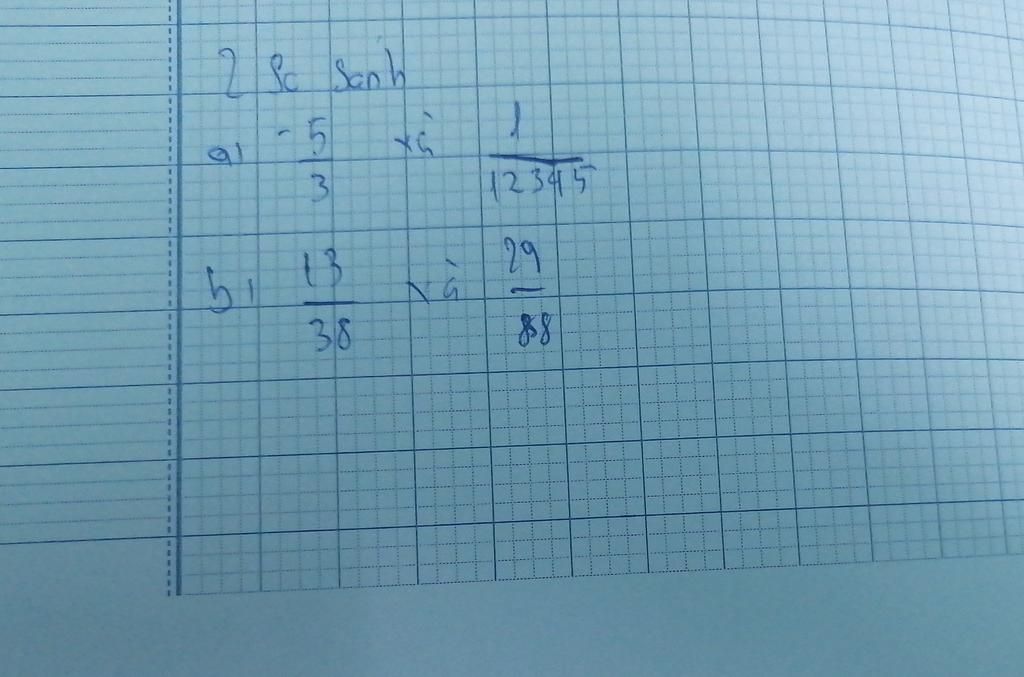 2 So sánh
a) -5/3 và 1/12345
b) 13/38 và 29/88